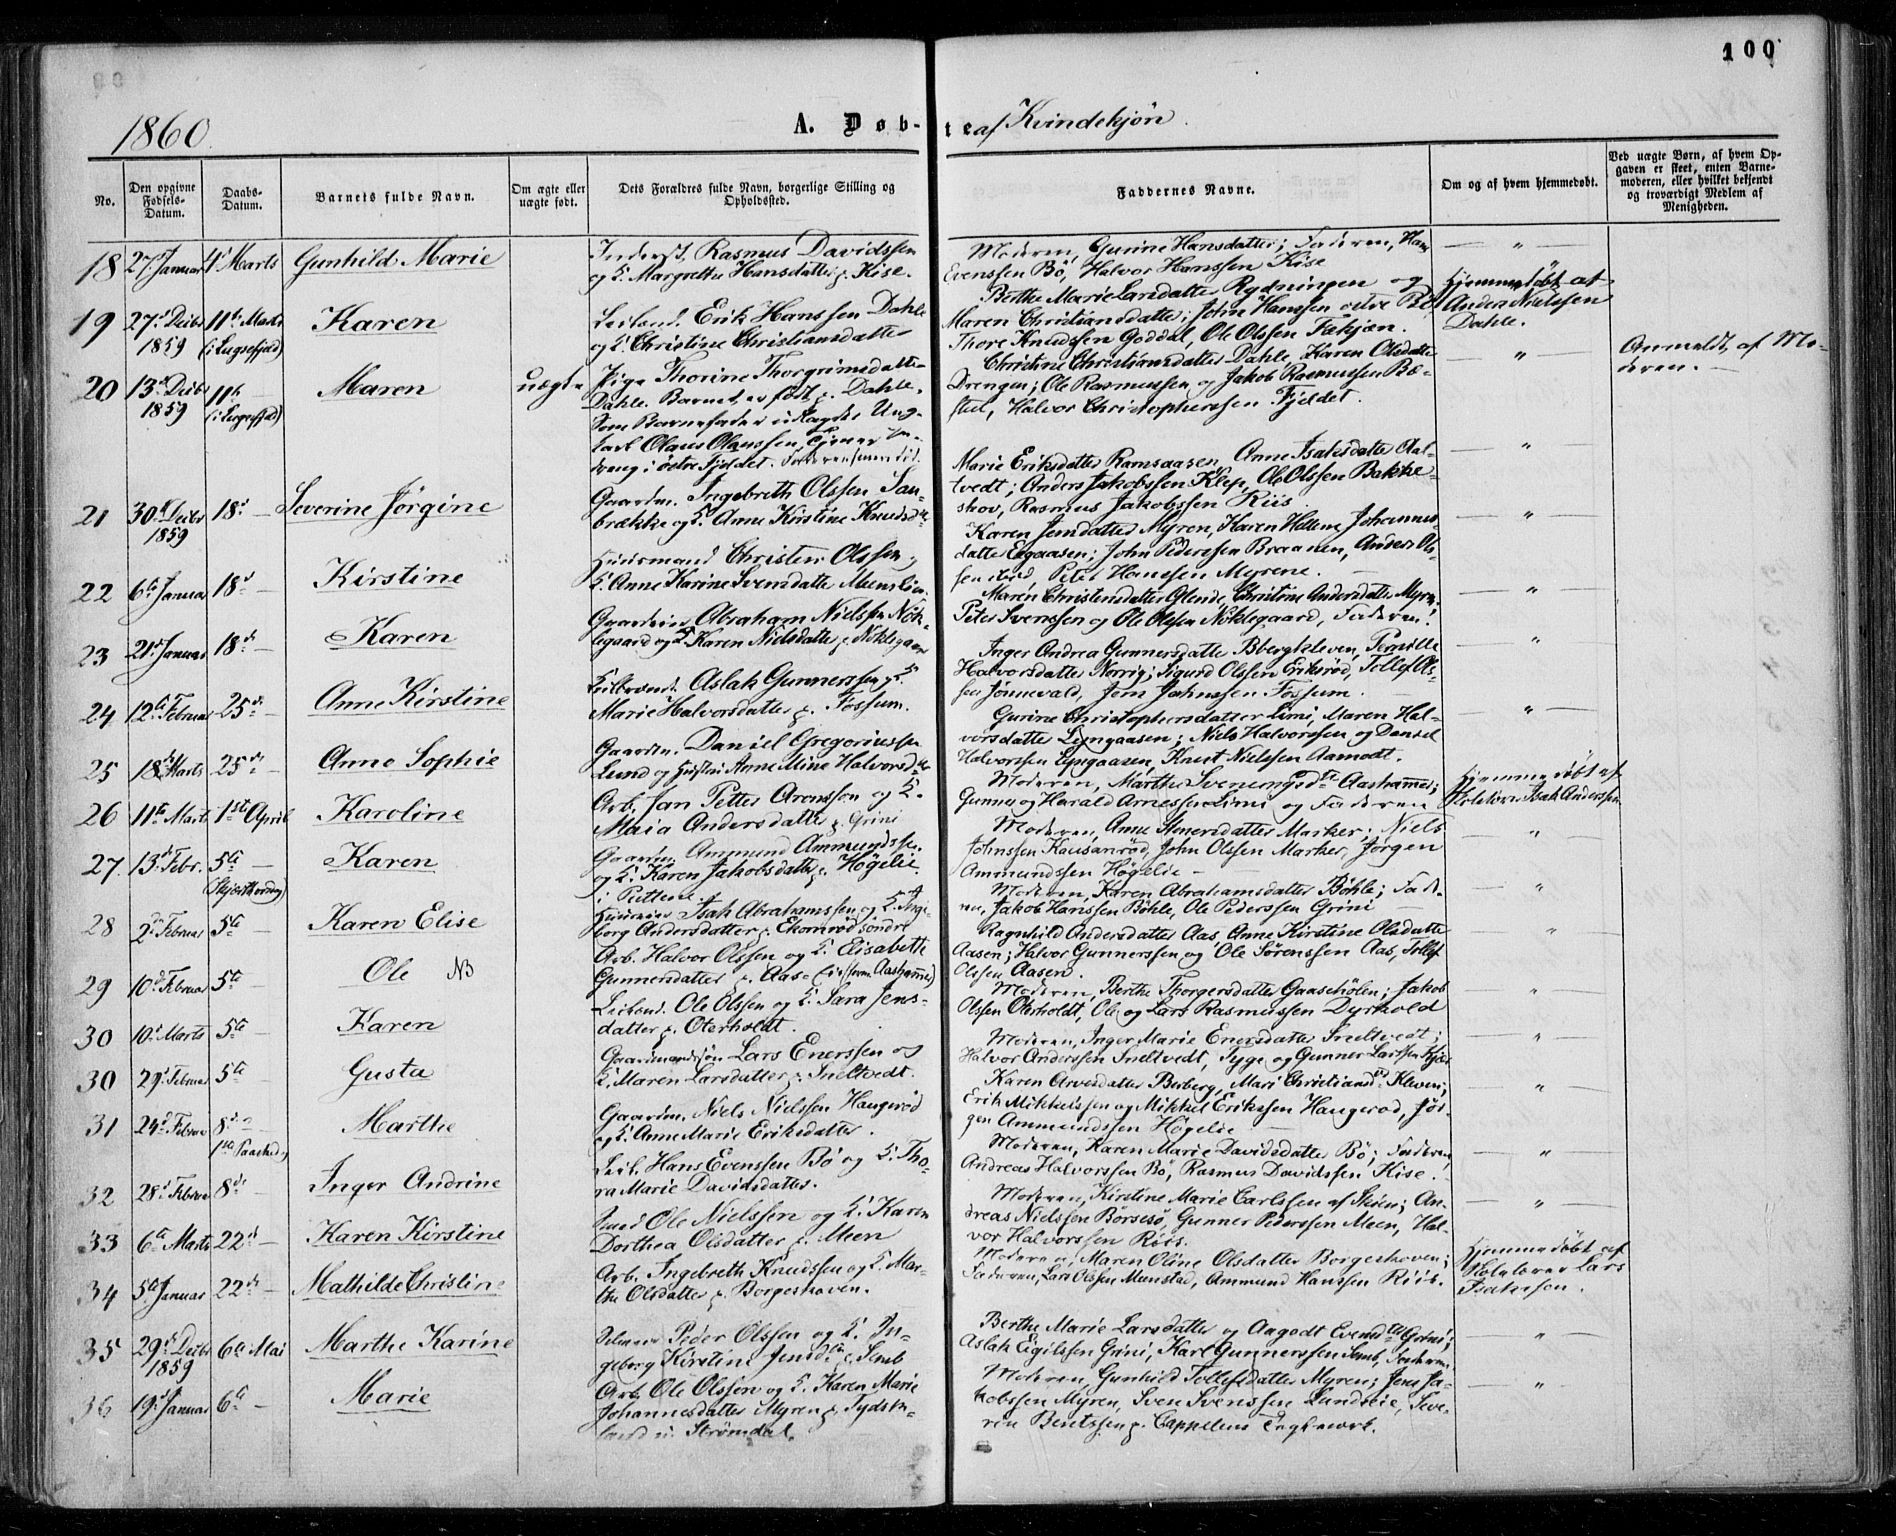 100
1860.
A. Døb-te af Kvindekjøn.
No.
Den opgivne Fødsels-Datum.
Daabs-Datum.
Barnets fulde Navn.
Om ægte eller uægte født.
Dets Forældres fulde Navn, borgerlige Stilling og Opholdssted.
Faddernes Navne.
Om og af hvem hjemmedøbt.
Ved uægte Børn, af hvem Opgaven er skeet, enten Barnemoderen, eller hvilket bekjendt og troværdigt Medlem af Menigheden.
18 27 Januar 4 Marts Gunhild Marie
Inderst Rasmus Davidssen
og K. Margrethe Hansdatter p. Kise.
Moderen, Gurine Hansdatter; Faderen, Hans
Evenssen Bø, Halvor Hanssen Kise
— " —
19 27 Decbr 1859 11te Marts Karen
Leilend. Erik Hanssen Dahle
og K. Christine Christiansdatter
Berthe Marie Larsdatter Rydningen og
Maren Christiansdatter; John Hanssen
Thore Knudssen Goddal, Ole Olssen
Hjemmedøbt af
Anders Nielssen
Dahle.
20 13 Decbr 1859 11te Maren uægte
Pige Thorine Thorgrimsdatter
Dahle. Barnet er født p. Dahle.
Som Barnefader er udlagt Ung-
karl Olaus Olaussen
i østre Fjeldet.
Christine Christiansdatter Dahle, Karen Olsdatter
Drengen; Ole Rasmussen og Jakob Rasmussen Bø-
stul, Halvor Christopherssen Fjeldet.
— " —
Anmeldt af Mo-
deren. —
21 30 Decbr 1859 18 — Severine Jørgine
Gaardm. Ingebreth Olssen San-
brække og K. Anne Kirstine Knudsd
Marie Eriksdatter Ramsaasen, Anne Isaksdatter Aal-
tvedt; Anders Jakobssen Klep, Ole Olssen Bakke-
skov, Rasmus Jakobssen Riis
— " —
22 6te Januar 18 — Kirstine
Huusmand Christen Olssen,
K. Anne Karine Svensdatter
Karen Jensdatter Myren, Karen Hellene Johannes-
datter; John Pederssen Braanen, Anders Ols-
sen, Peter Hanssen Myrene.
— " —
23 21 Januar 18 — Karen
Gaardeier Abraham Nielssen Nøk-
legaard og K. Karen Nielsdatter p. Nøklegaard
Maren Christensdatter Glende, Christine Andersdatter Myren;
Peter Svenssen og Ole Olssen Nøklegaard, Faderen.
— " —
24 12te Februar 25 — Anne Kirstine
Leilænd. Aslak Gunnerssen og K.
Marie Halvorsdatter p. Fossum.
Inger Andrea Gunnersdatter, Pernille
Halvorsdatter; Sigurd Olssen Eriksrød, Tollef Ols-
sen Jønnevald, Fossum.
— " —
25 18 Marts 25 — Anne Sophie
Gaardm. Daniel Gregoriussen
Lund og Hustru Anne Mine Halvorsd
Gurine Christophersdatter Limi, Maren Hal-
vorsdatter Lyngaasen; Niels Halvorssen og Daniel
Halvorssen Lyngaasen, Knut Nielssen Aamodt.
— " —
26 11te Marts 1ste April Karoline
Arb. Jan Petter Aronssen og K.
Maia Andersdatter p. Grini
Moderen, Marthe Aashammer;
Gunner og Harald Arnessen Limi og Faderen
Hjemmedøbt af
Isak Anderssen
27. 13 Febr. 5te — Karen
Gaardm. Ammund Ammundssen
og K. Karen Jakobsdatter p. Høgelie.
Moderen, Anne Marker; Niels
Johnssen, John Olssen Marker, Jørgen
Ammundssen Høgelie —
— " —
28 2 Februar 5te — Karen Elise
Isak Abrahamssen og K. Inge-
borg Andersdatter p. Ekornrød søndre
Moderen, Karen Abrahamsdatter Bøhle; Fade-
ren, Jakob Hanssen Bøhle, Ole Pederssen Grini
— " —
29 10 Februar 5te — Ole NB
Arb. Halvor Olssen og K. Elisabeth
Gunnersdatter p. Aas
Ragnhild Andersdatter Aas, Anne Kirstine Olsdatter
Aasen; Halvor Gunnerssen og Ole Sørenssen Aas, Tollef
Olssen Aasen.
— " —
30 10 Marts 5te — Karen
Leilend. Ole Olssen og K. Sara Jens-
datter p. Oterholdt.
Moderen, Berthe Thorgersdatter Gaasehølen; Jakob
Olssen Oterholdt, Ole og Lars Rasmussen Dyrkold
— " —
30 29 Februar 5te — Gusta
Gaardmandssøn Lars Enerssen og
K. Maren Larsdatter p. Sneltvedt.
Moderen, Inger Marie Enersdatter Sneltvedt;
Halvor Anderssen Sneltvedt, Tyge og Gunner Larssen
— " —
31 24 Februar 8de — 1ste Paaskedag Marthe
Gaardm. Niels Nielssen Haugerød
og K. Anne Marie Eriksdatter.
Karen Arvesdatter Berberg, Mari Kleven;
Erik Mikkelssen og Mikkel Erikssen Haugerød, Jør-
gen Ammundssen Høgelie —
— " —
32 28 Februar 8de — Inger Andrine
Leil. Hans Evenssen Bø og K. Tho-
ra Marie Davidsdatter.
Moderen, Karen Marie Davidsdatter Bø; Faderen,
Andreas Halvorssen Bø, Rasmus Davidssen Kise.
— " —
33 6te Marts 22 — Karen Kirstine
Smed Ole Nielssen og K. Karen
Dorthea Olsdatter p. Meen
Moderen, Kirstine Marie Carlssen af Skien; An-
dreas Nielssen Børsesø, Gunner Pederssen Meen, Hal-
vor Halvorssen Riis.
— " —
34 5te Januar 22 — Mathilde Christine
Arb. Ingebreth Knudssen og K. Mar-
the Olsdatter p. Borgeshaven.
Moderen, Maren Oline Olsdatter Borgeshaven;
Faderen, Lars Olssen Menstad, Ammund Hanssen Riis.
Hjemmedøbt af
Lars
35 29 Decbr 1859 6te Mai Marthe Karine
Peder Olssen og K. In-
geborg Kirstine Jensd p. Semb
Berthe Marie Larsdatter og Aagodt Evensd Grini;
Aslak Eigilssen Grini, Karl Gunnerssen Semb, Faderen
— " —
36 19 Januar 6te — Marie
Arb. Ole Olssen og K. Karen Marie
Johannesdatter Myren p. Tydsk-
land u. Strømdal.
Moderen, Gunhild Tollefsdatter Myren; Jens Ja-
kobssen Myren, Sven Svenssen, Seve-
rin Bentssen p. Cappelens
— " —